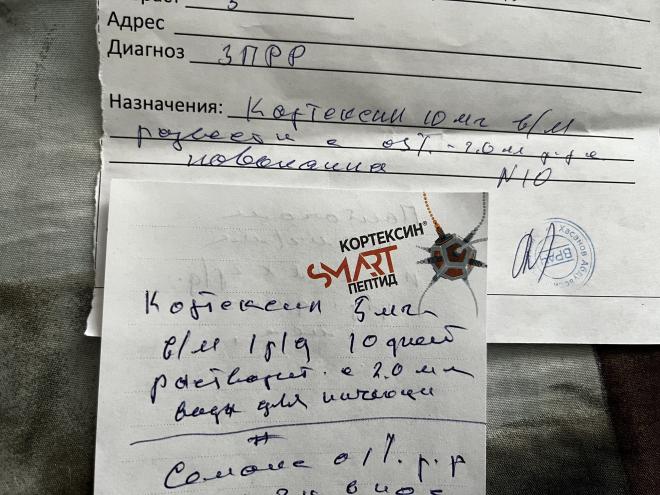 Адрес
Диагноз ЗПРР
Назначения: Кортексин 10 мг в/м
развести с 0,5% - 2.0 мл р-ра
новокаина N10
ВРАЧ
КОРТЕКСИН®
SMART
ПЕПТИД
Кортексин 5 мг
в/м 1 р/д 10 дней
растворит. с 2.0 мл
воды для инъекции
0,1% р-р
в нос